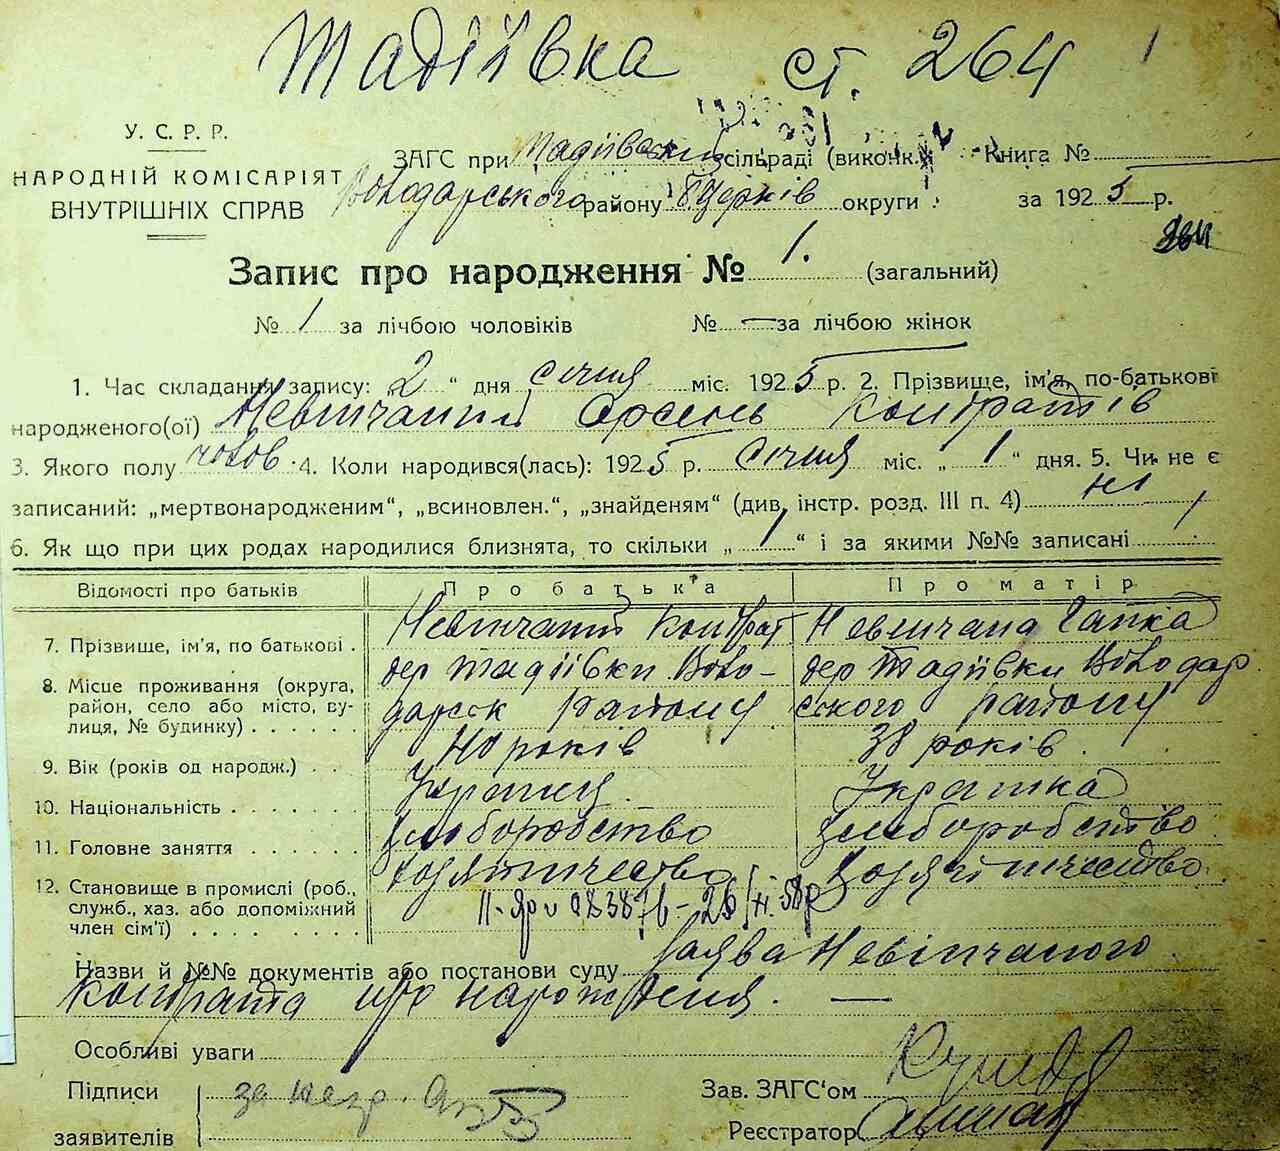 Тадіївка ст. 264 1
У. С. Р. Р.
НАРОДНІЙ КОМІСАРІЯТ
ВНУТРІШНІХ СПРАВ
ЗАГС при Тадіївській сільраді (виконк.) Книга №
Володарського району БЦерків округи за 1925 р.
264
Запис про народження № 1. (загальний)
№ 1 за лічбою чоловіків № — за лічбою жінок
1. Час складання запису: 2 “ дня січня міс. 1925 р. 2. Прізвище, ім'я, по-батькові
народженого(ої) Невінчаний Арсень Кондратів
3. Якого полу чолов 4. Коли народився(лась): 1925 р. січня міс. „ 1 “ дня. 5. Чи не є
записаний: „мертвонародженим“, „всиновлен.“, „знайденям“ (див. інстр. розд. III п. 4) ні
6. Як що при цих родах народилися близнята, то скільки „ 1 “ і за якими №№ записані
Відомості про батьків Про батька Про матір
7. Прізвище, ім'я, по батькові . Невінчаний Кондрат Невенчана Гапка
8. Місце проживання (округа, район, село або місто, вулиця, № будинку) . . . . . . дер Тадіївки Воло-
дарськ району дер Тадіївки Володар
ського району
9. Вік (років од народж.) . . 40 років 38 років.
10. Національність . . . . . . . Українка
11. Головне заняття . . . . . . хліборобство хліборобство
12. Становище в промислі (роб., служб., хаз. або допоміжний член сім'ї) . . . . . . . .
Назви й №№ документів або постанови суду Заява Невінчаного
Кондрата про народження. —
Особливі уваги
Підписи
заявителів
за негр.
Зав. ЗАГС‘ом
Реєстратор